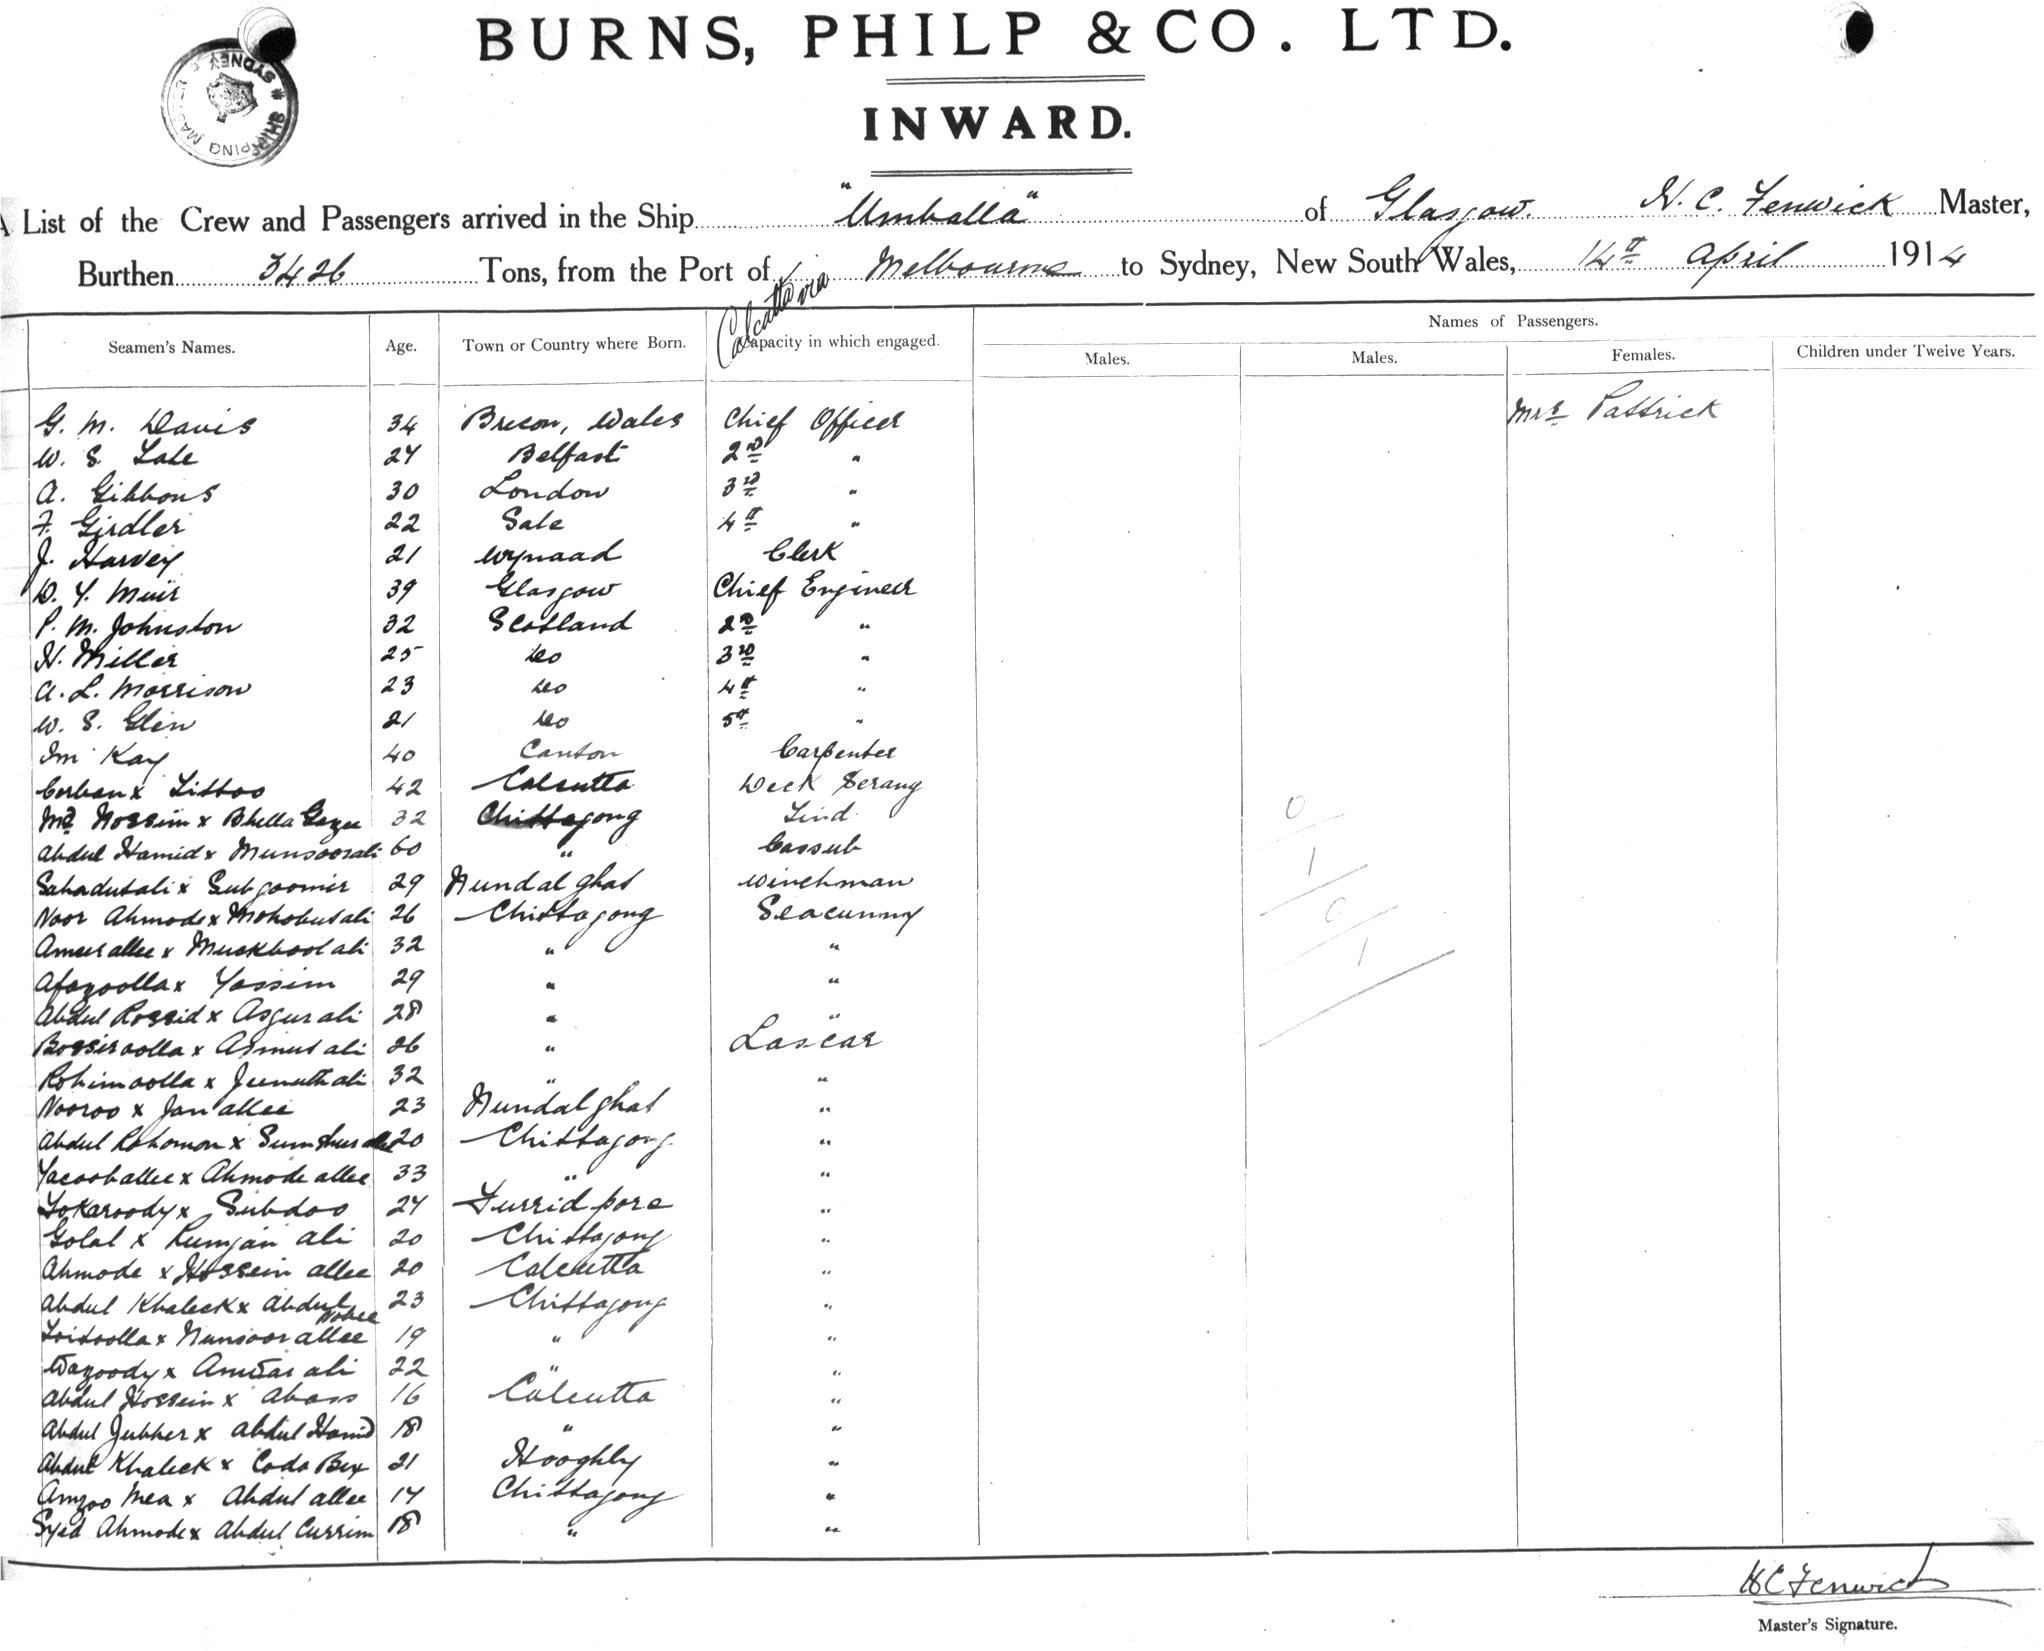 BURNS, PHILP & CO. LTD.
INWARD.
SHIPPING MAS SYDNEY
A List of the Crew and Passengers arrived in the Ship "Umballa" of Glasgow. H. C. Fenwick Master,
Burthen 3426 Tons, from the Port of Calcutta via Melbourne to Sydney, New South Wales, 14th April 1914
Names of Passengers.
Seamen's Names. Age. Town or Country where Born. Capacity in which engaged. Males. Males. Females. Children under Twelve Years.
G. M. Davis 34 Brecon, Wales Chief Officer Mrs Pattrick
W. S. 24 Belfast 2nd "
A. Gibbons 30 London 3rd "
F. Girdler 22 Sale 4th "
J. Harvey 21 Wynaad Clerk
D. Y. Muir 39 Glasgow Chief Engineer
P. M. Johnston 32 Scotland 2nd "
H. Miller 25 do 3rd "
A. L. Morrison 23 do 4th "
W. S. Glen 21 do 5th "
Im Kay 40 Canton Carpenter
Corban x Tittoo 42 Calcutta Deck Serang
Md Hossim x Bhella Gazee 32 Chittagong Tind
0
Abdul Hamid x Munsoorali 60 " Cassub
1
Sahadutali x 29 Nundalghat Winchman
Noor Ahmode x Mohobutali 26 Chittagong Seacunny
0
Ameerallee x Muckboolali 32 " "
1
Afazoolla x Yassim 29 " "
Abdul Rossid x Asgurali 28 " "
Bossiroolla x Asmutali 26 " Lascar
Rohimoolla x 32 " "
Nooroo x Janallee 23 Nundalghat "
Abdul Rohomon x 20 Chittagong "
Yacooballee x Ahmodeallee 33 " "
x Subdoo 24 Furridpore "
Golal x Rumjan ali 20 Chittagong "
Ahmode x Hossein allee 20 Calcutta "
Abdul Khaleck x Abdul Nobee 23 Chittagong "
x Munsoorallee 19 " "
Wazoody x ali 22 " "
Abdul Hossein x Abass 16 Calcutta "
Abdul Jubber x Abdul Hamid 18 " "
Abdul Khaleck x Coda Bux 21 Hooghly "
Amzoo Mea x Abdul allee 17 Chittagong "
Syed Ahmode x Abdul Currim 18 " "
H C Fenwick
Master's Signature.